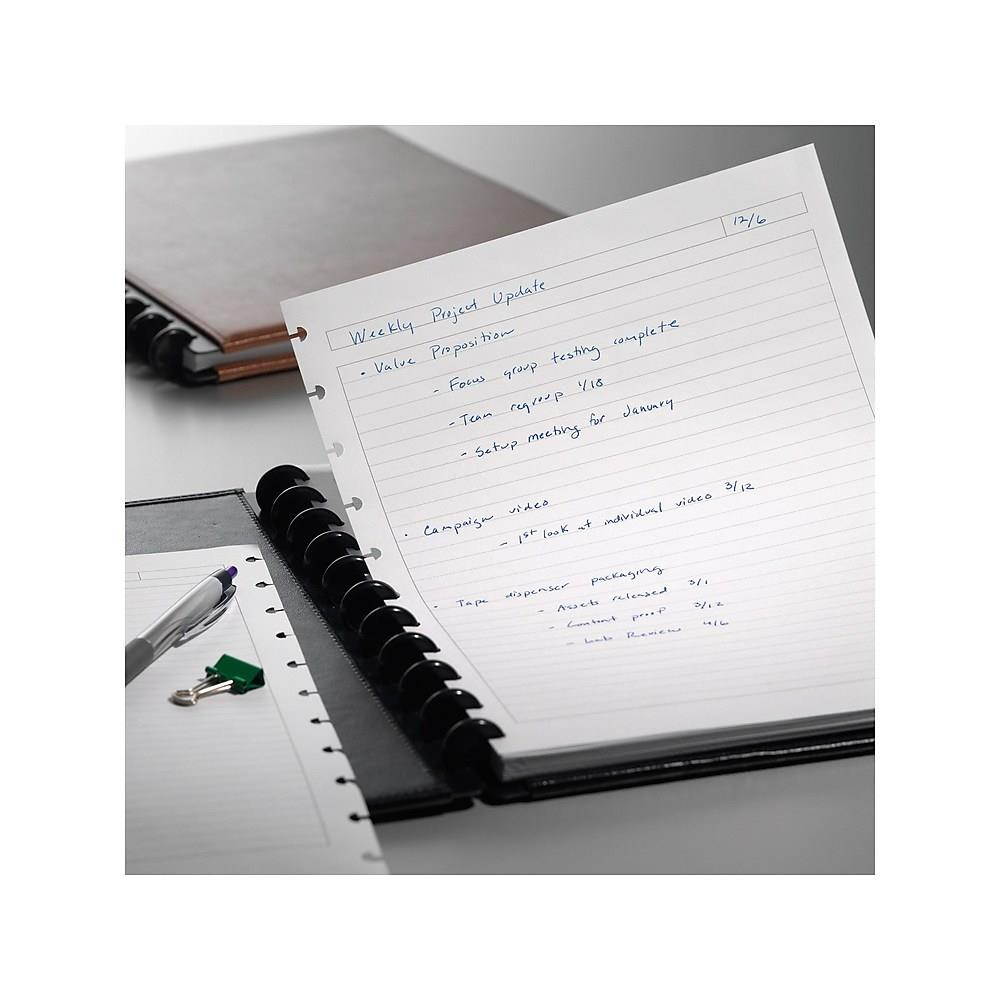 12/6
Weekly Project Update
• Value Proposition
- Focus group testing complete
- Team regroup 1/18
- Setup meeting for January
• Campaign video
- 1st look at individual video 3/12
• Tape dispenser packaging
- Assets released 3/1
- Content proof 3/12
- Lab Review 4/6